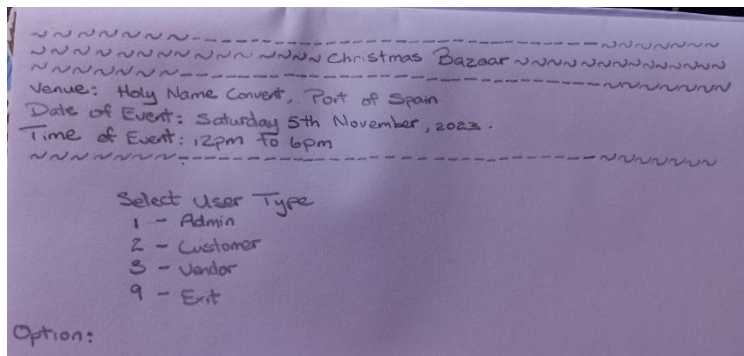 ~~~~~~~--------------------------------~~~~~~~
~~~~~~~~~~~~~~~~ Christmas Bazaar ~~~~~~~~~~~~~~~~
~~~~~~~--------------------------------~~~~~~~
Venue: Holy Name Convert, Port of Spain
Date of Event: Saturday 5th November, 2023.
Time of Event: 12pm to 6pm
~~~~~~~--------------------------------~~~~~~~
Select User Type
1 - Admin
2 - Customer
3 - Vendor
9 - Exit
Option: